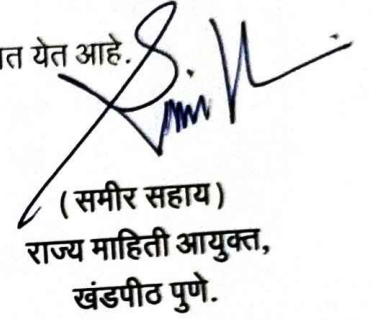 येत आहे.
(समीर सहाय)
राज्य माहिती आयुक्त,
खंडपीठ पुणे.